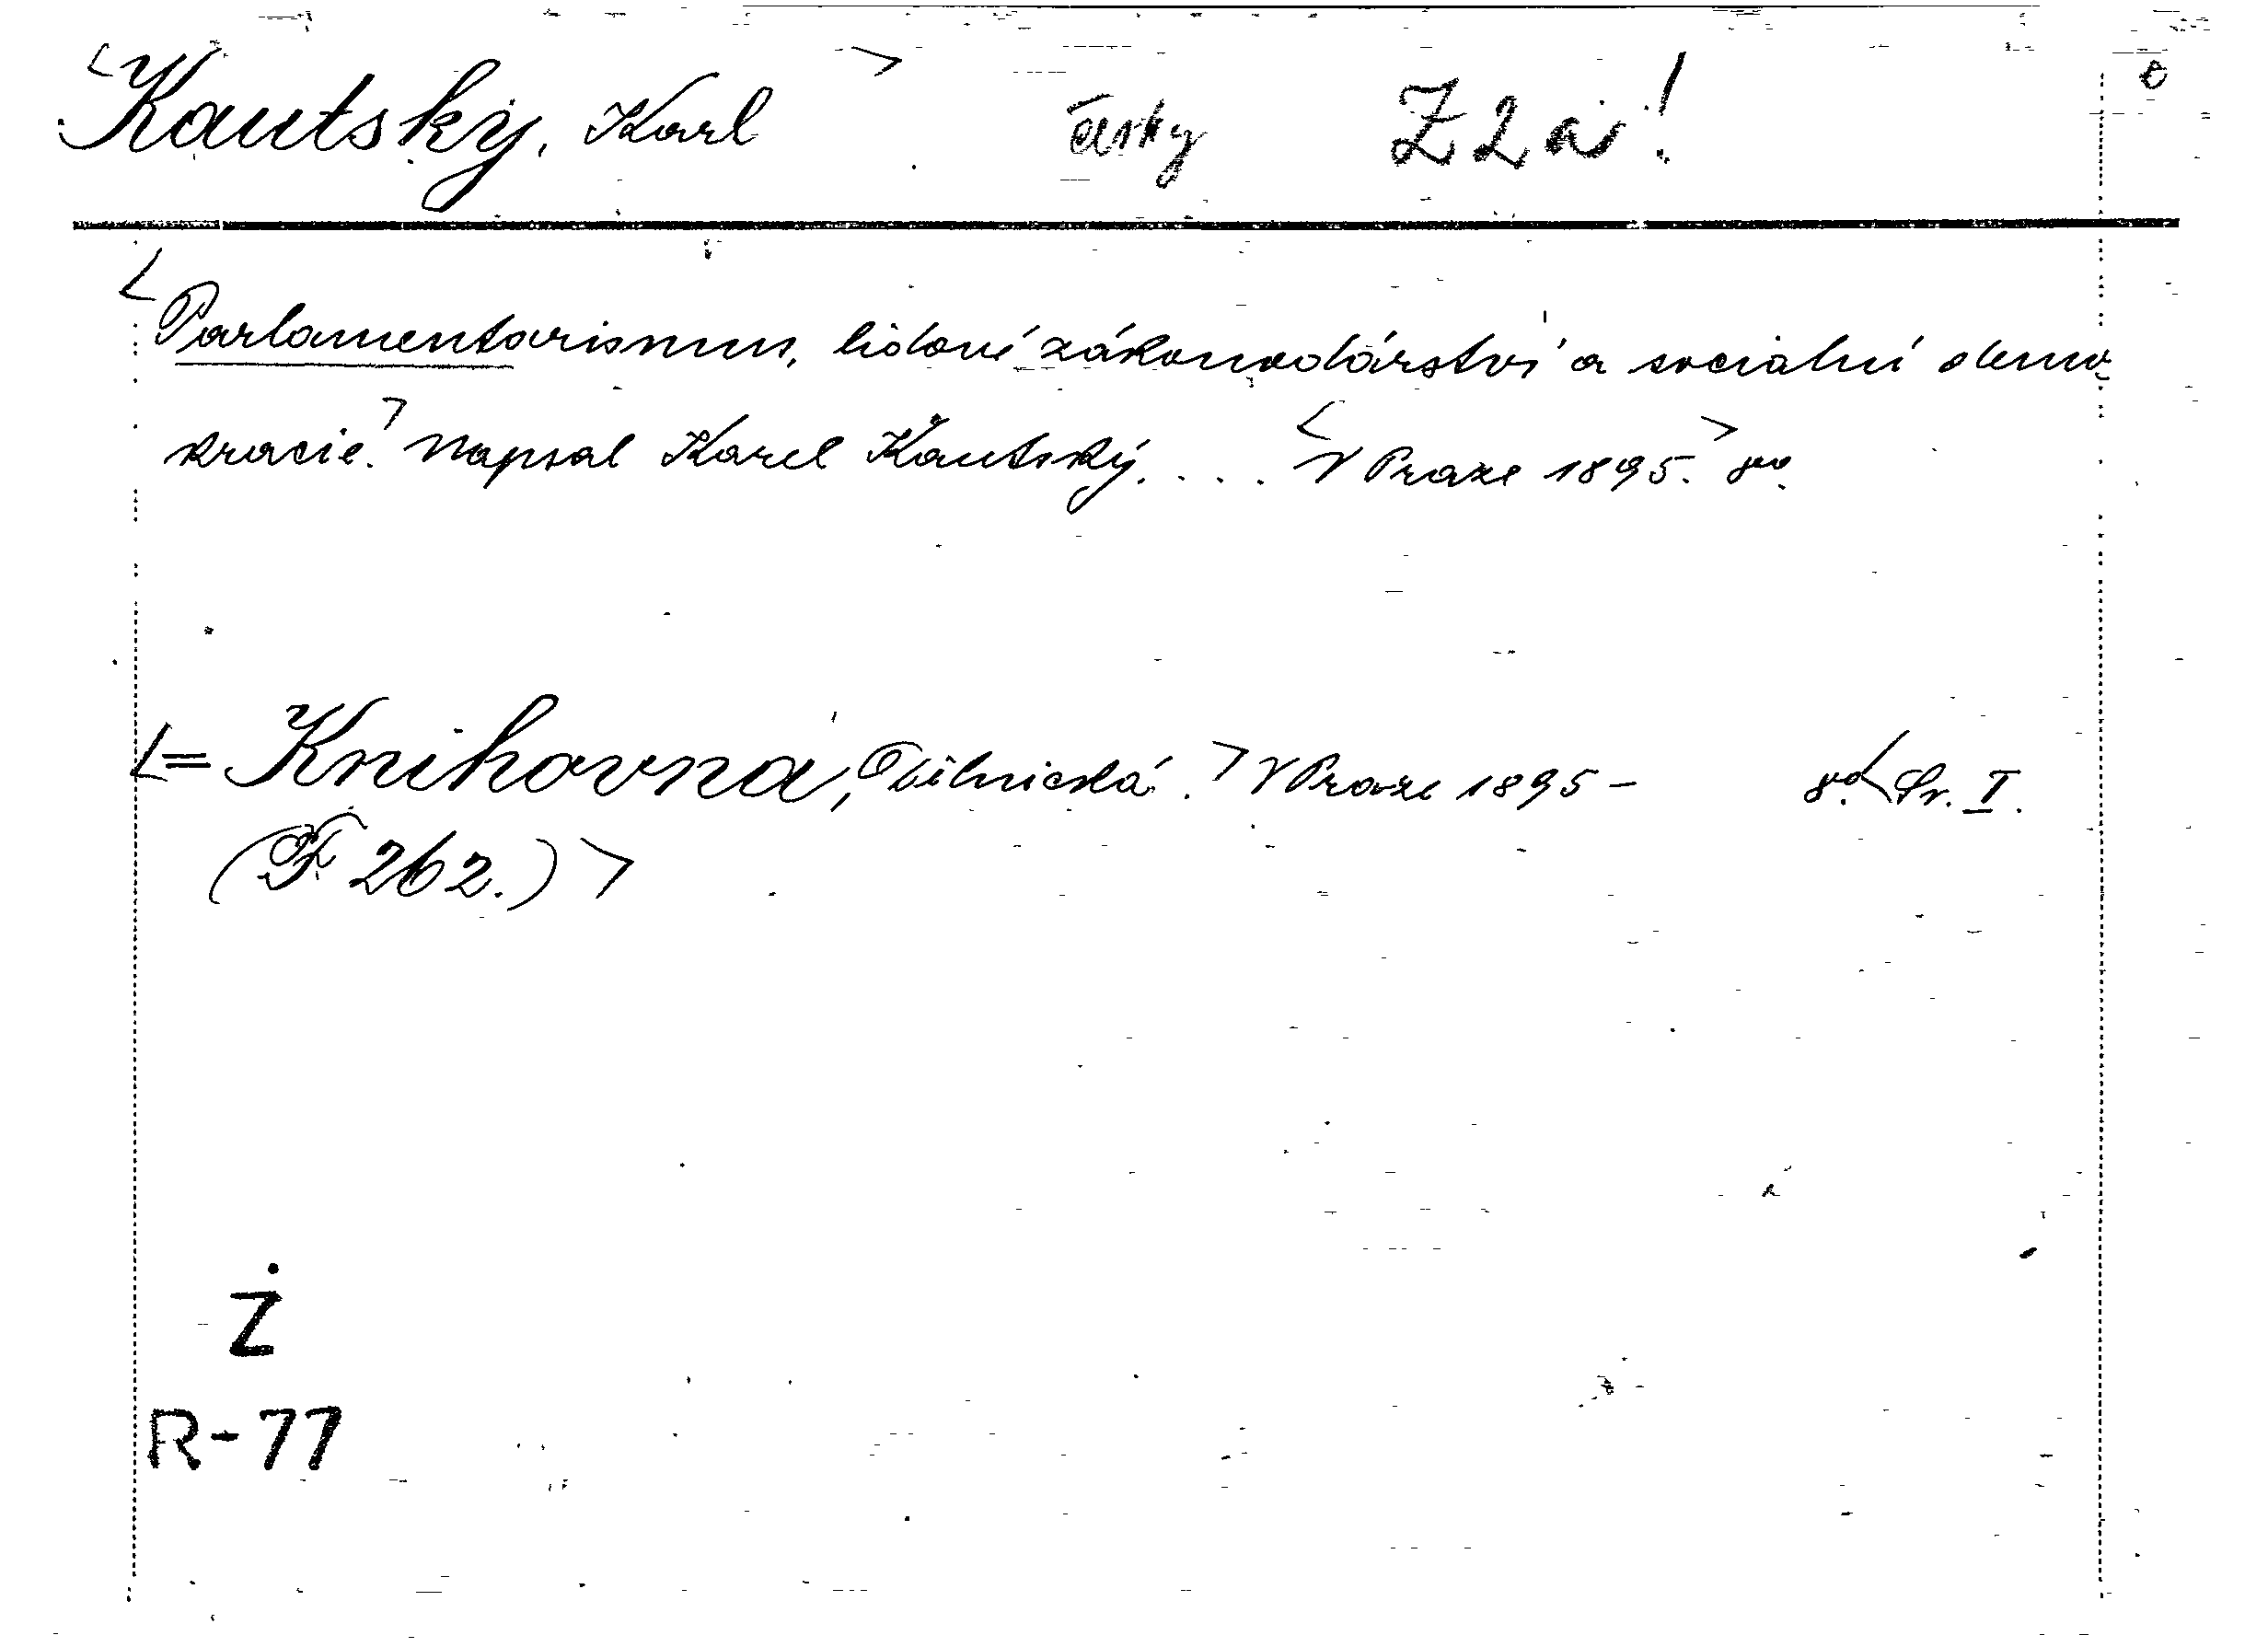 <Kautský, Karl> česky Z 2 a!
<Parlamentarismus, lidové zákonodárství a sociální demo-
kracie.> Napsal Karel Kautský. . . . <V Praze 1895.> 8vo.
<= Knihovna, Dělnická.> V Praze 1895 – 8vo. <Sv. I.
(F 262.)>
Ż
R-77